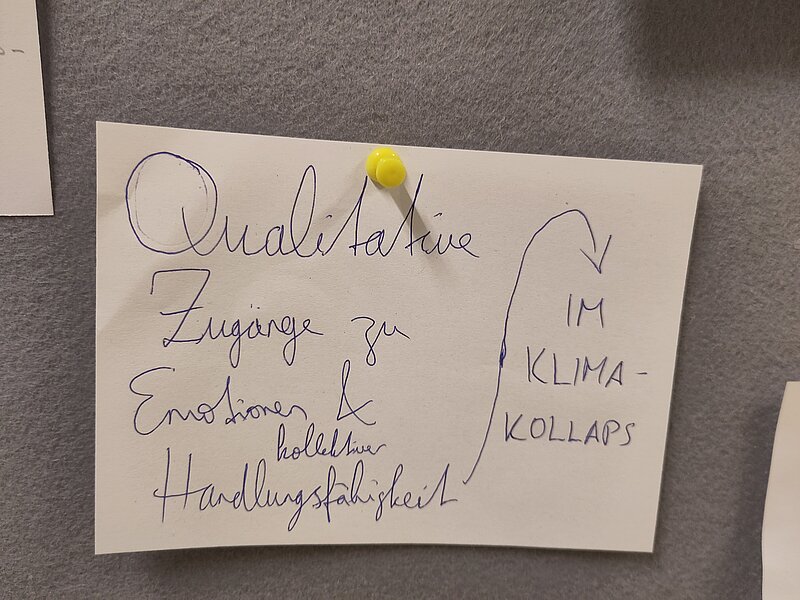 Qualitative
Zugänge zu
Emotionen &
kollektiver
Handlungsfähigkeit
IM
KLIMA-
KOLLAPS